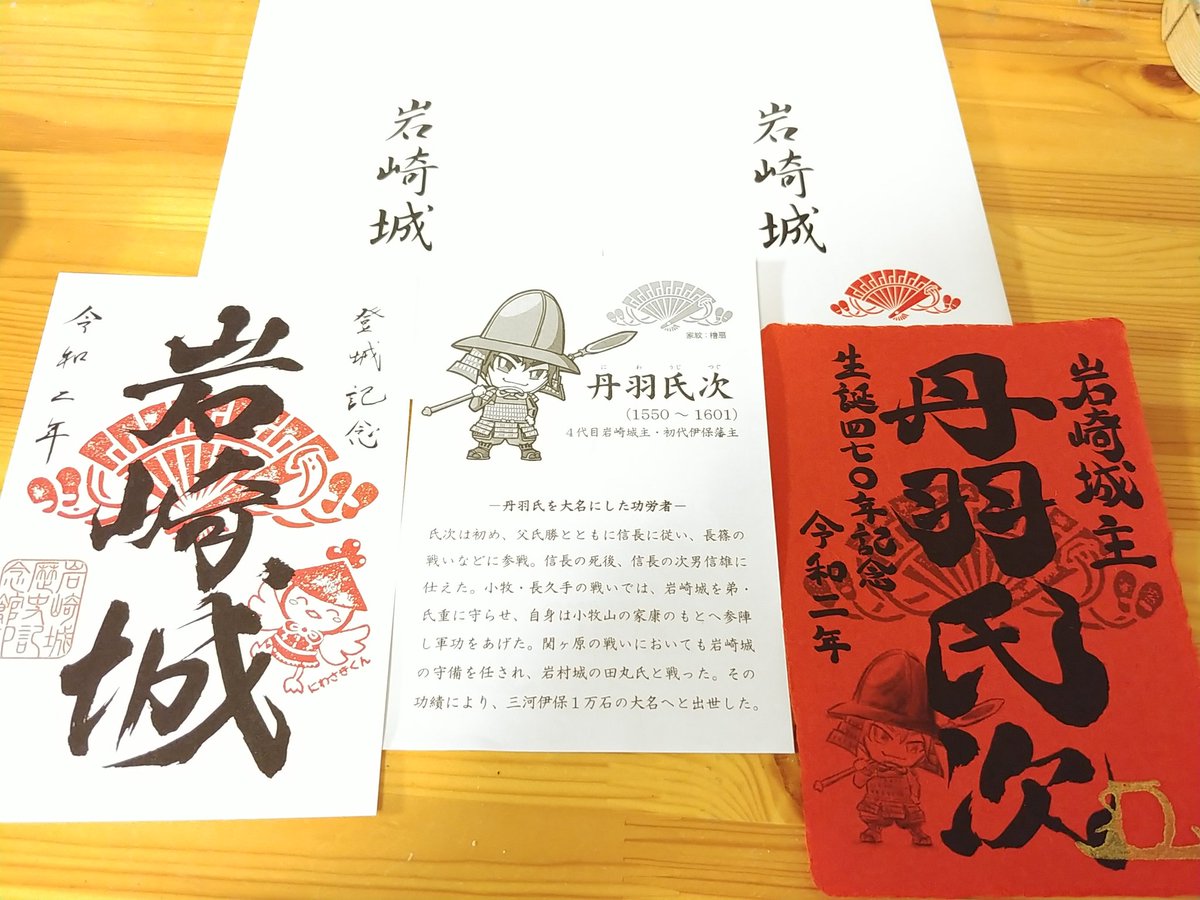 岩崎城
岩崎城
登城記念
岩崎城
令和二年
岩崎城歴史記念館印
にわさきくん
家紋：檜扇
にわ うじつぐ
丹羽氏次
（1550 ～ 1601）
４代目岩崎城主・初代伊保藩主
―丹羽氏を大名にした功労者―
氏次は初め、父氏勝とともに信長に従い、長篠の
戦いなどに参戦。信長の死後、信長の次男信雄に
仕えた。小牧・長久手の戦いでは、岩崎城を弟・
氏重に守らせ、自身は小牧山の家康のもとへ参陣
し軍功をあげた。関ヶ原の戦いにおいても岩崎城
の守備を任され、岩村城の田丸氏と戦った。その
功績により、三河伊保１万石の大名へと出世した。
岩崎城主
丹羽氏次
生誕四七〇年記念
令和二年